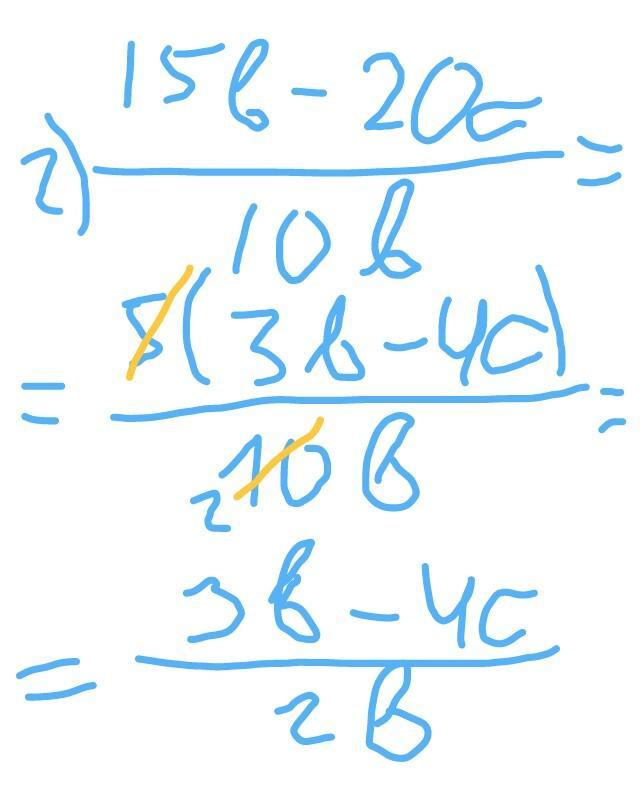 2) (15b - 20c) / (10b) =
= 5(3b - 4c) / 2 10b =
= (3b - 4c) / (2b)